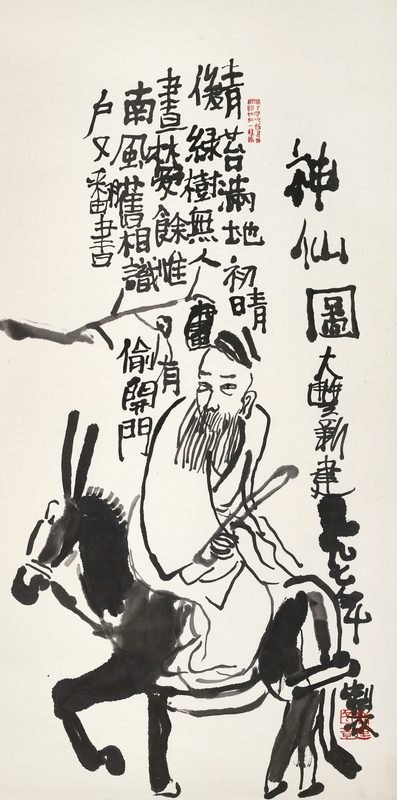 神仙圖 大豐新建
七年製
青苔滿地初晴
後綠樹無人畫
晝夢餘惟有
南風舊相識偷開門
戶又翻書